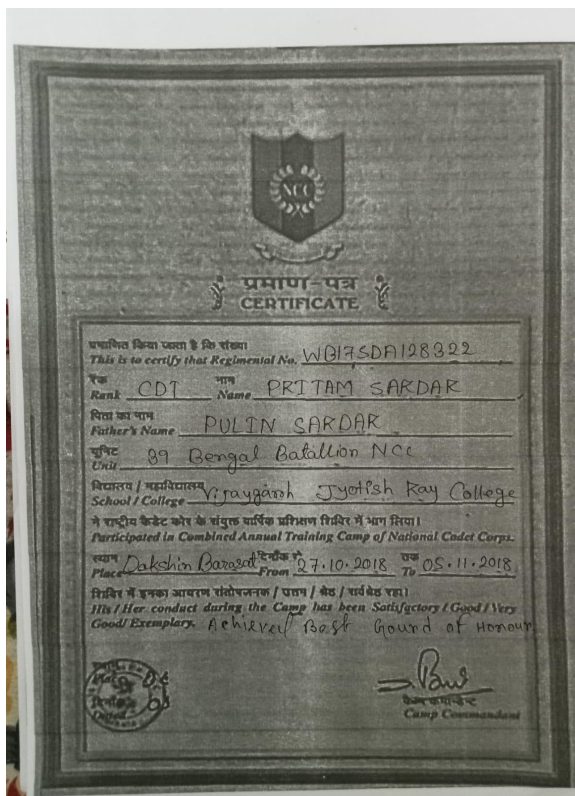 NCC
प्रमाण-पत्र
CERTIFICATE
प्रमाणित किया जाता है कि संख्या
This is to certify that Regimental No. WB17SDA128322
रैंक नाम
Rank CDT Name PRITAM SARDAR
पिता का नाम
Father's Name PULIN SARDAR
यूनिट
Unit 39 Bengal Batallion NCC
विद्यालय / महाविद्यालय
School / College Vijaygarh Jyotish Ray College
ने राष्ट्रीय कैडेट कोर के संयुक्त वार्षिक प्रशिक्षण शिविर में भाग लिया।
Participated in Combined Annual Training Camp of National Cadet Corps.
स्थान दिनाँक से तक
Place Dakshin Barasat From 27.10.2018 To 05.11.2018
शिविर में इनका आचरण संतोषजनक / उत्तम / श्रेष्ठ / सर्वश्रेष्ठ रहा।
His / Her conduct during the Camp has been Satisfactory / Good / Very
Good / Exemplary. Achieved Best Gourd of Honour
दिनाँक
Dated
कैम्प कमाण्डेन्ट
Camp Commandant